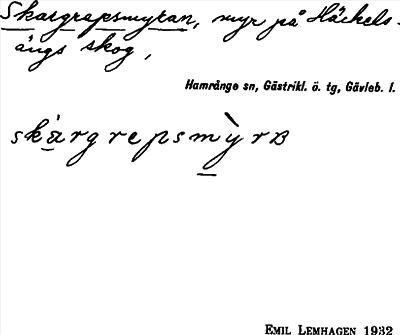 Skargrepsmyran, myr på Häckels-
ängs skog,
Hamrånge sn, Gästrikl. ö. tg, Gävleb. l.
skàrgrepsmỳrʙ
EMIL LEMHAGEN 1932